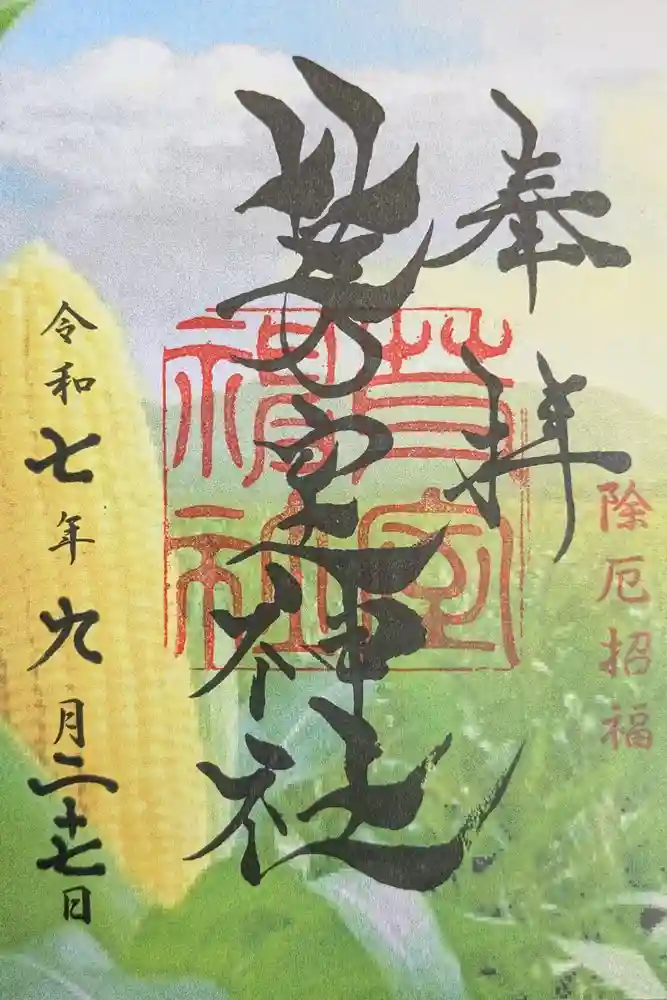 除厄招福
奉拝
芽室神社
芽室
神社
令和七年九月二十七日